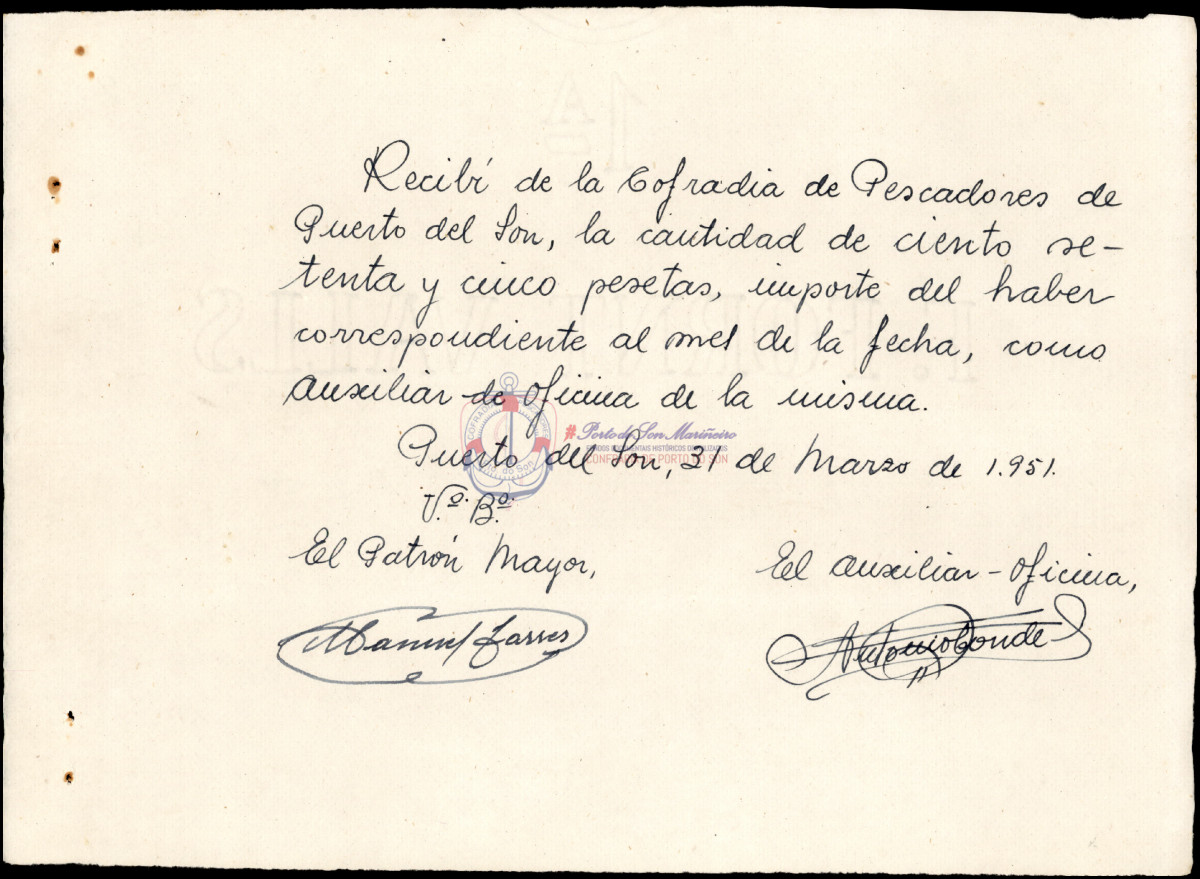 1ª
Recibí de la Cofradia de Pescadores de
Puerto del Son, la cantidad de ciento se-
tenta y cinco pesetas, importe del haber
correspondiente al mes de la fecha, como
auxiliar de oficina de la misma.
#Porto do Son Mariñeiro
FONDOS DOCUMENTAIS HISTÓRICOS DIGITALIZADOS
CONFRARÍA DE PORTO DO SON
Puerto del Son, 31 de Marzo de 1.951.
Vº. Bº.
El Patrón Mayor,
El auxiliar-oficina,
Manuel
Antonio Conde